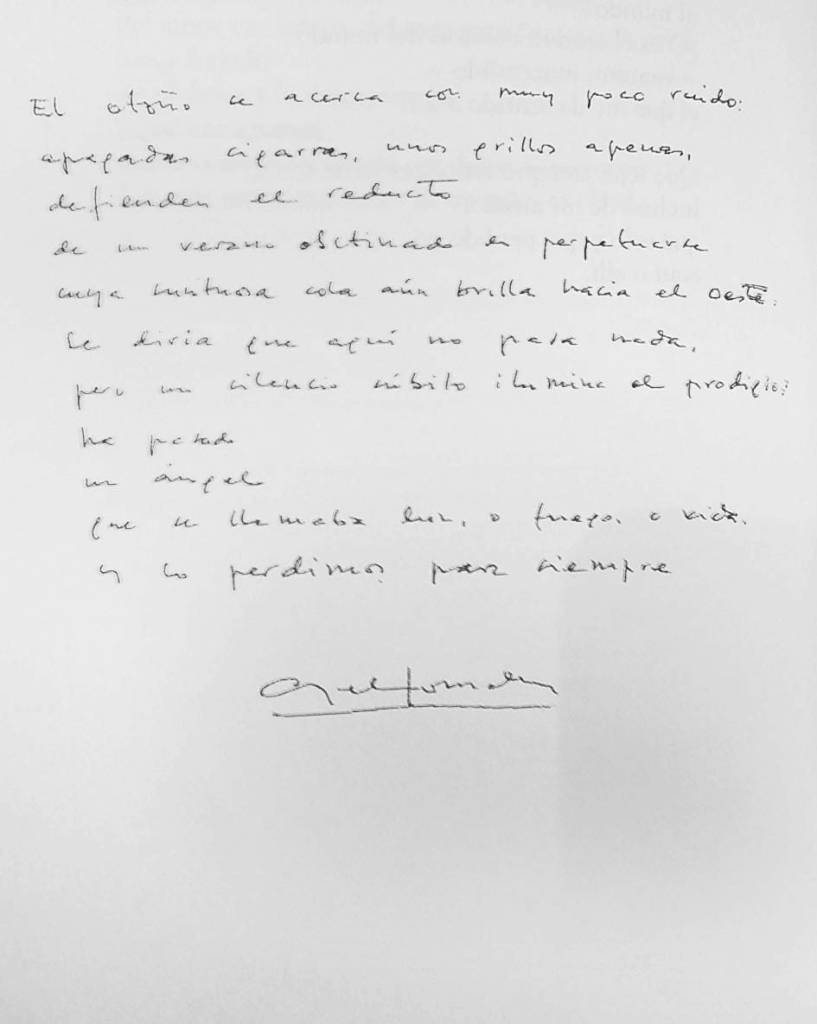 El otoño se acerca con muy poco ruido:
apagadas cigarras, unos grillos apenas,
defienden el reducto
de un verano obstinado en perpetuarse
cuya suntuosa cola aún brilla hacia el oeste.
Se diría que aquí no pasa nada,
pero un silencio súbito ilumina el prodigio:
ha pasado
un ángel
que se llamaba luz, o fuego, o vida.
y lo perdimos para siempre